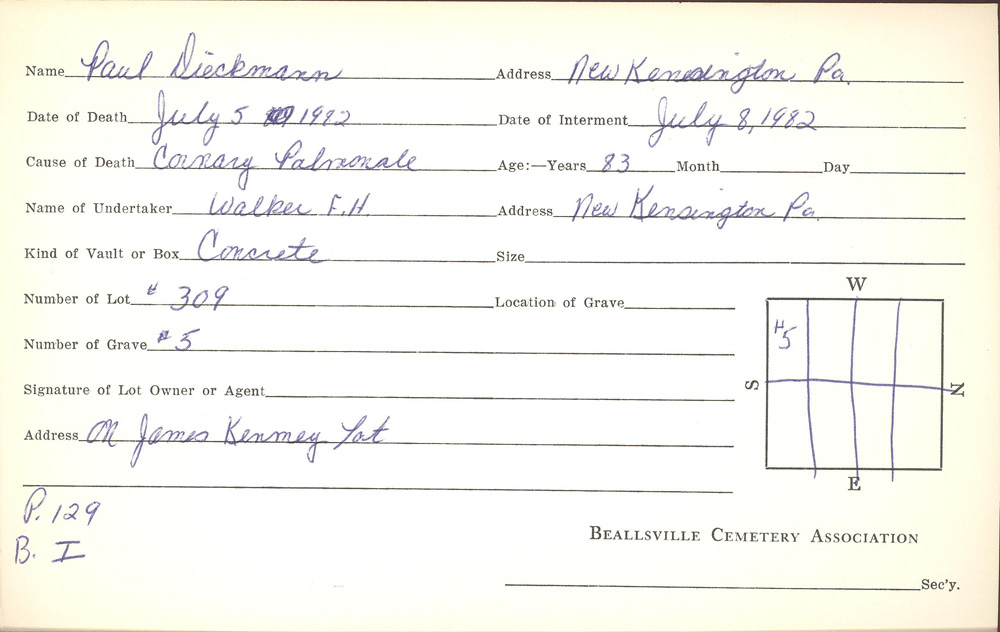 Name Paul Dieckmann Address New Kensington Pa.
Date of Death July 5 1982 Date of Interment July 8, 1982
Cause of Death Cornary Palmonale Age:—Years 83 Month Day
Name of Undertaker Walker F.H. Address New Kensington Pa.
Kind of Vault or Box Concrete Size
Number of Lot # 309 Location of Grave
W
Number of Grave # 5
#5
S
N
Signature of Lot Owner or Agent
Address On James Kenmey Lot
E
P. 129
B. I
BEALLSVILLE CEMETERY ASSOCIATION
Sec'y.